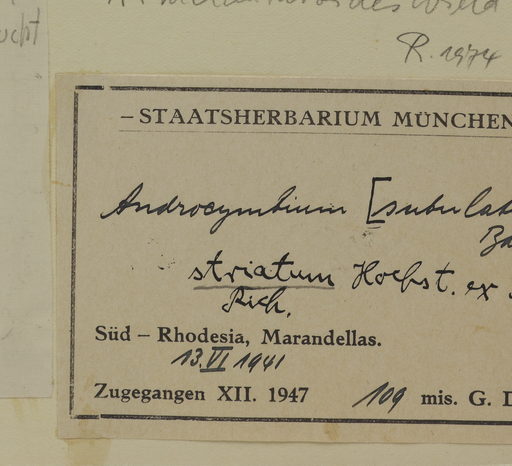 ucht
R. 1974
– STAATSHERBARIUM MÜNCHEN
Androcymbium [subulat
Ba
striatum Hochst. ex
Rich.
Süd – Rhodesia, Marandellas.
13.VI 1941
Zugegangen XII. 1947 109 mis. G. D